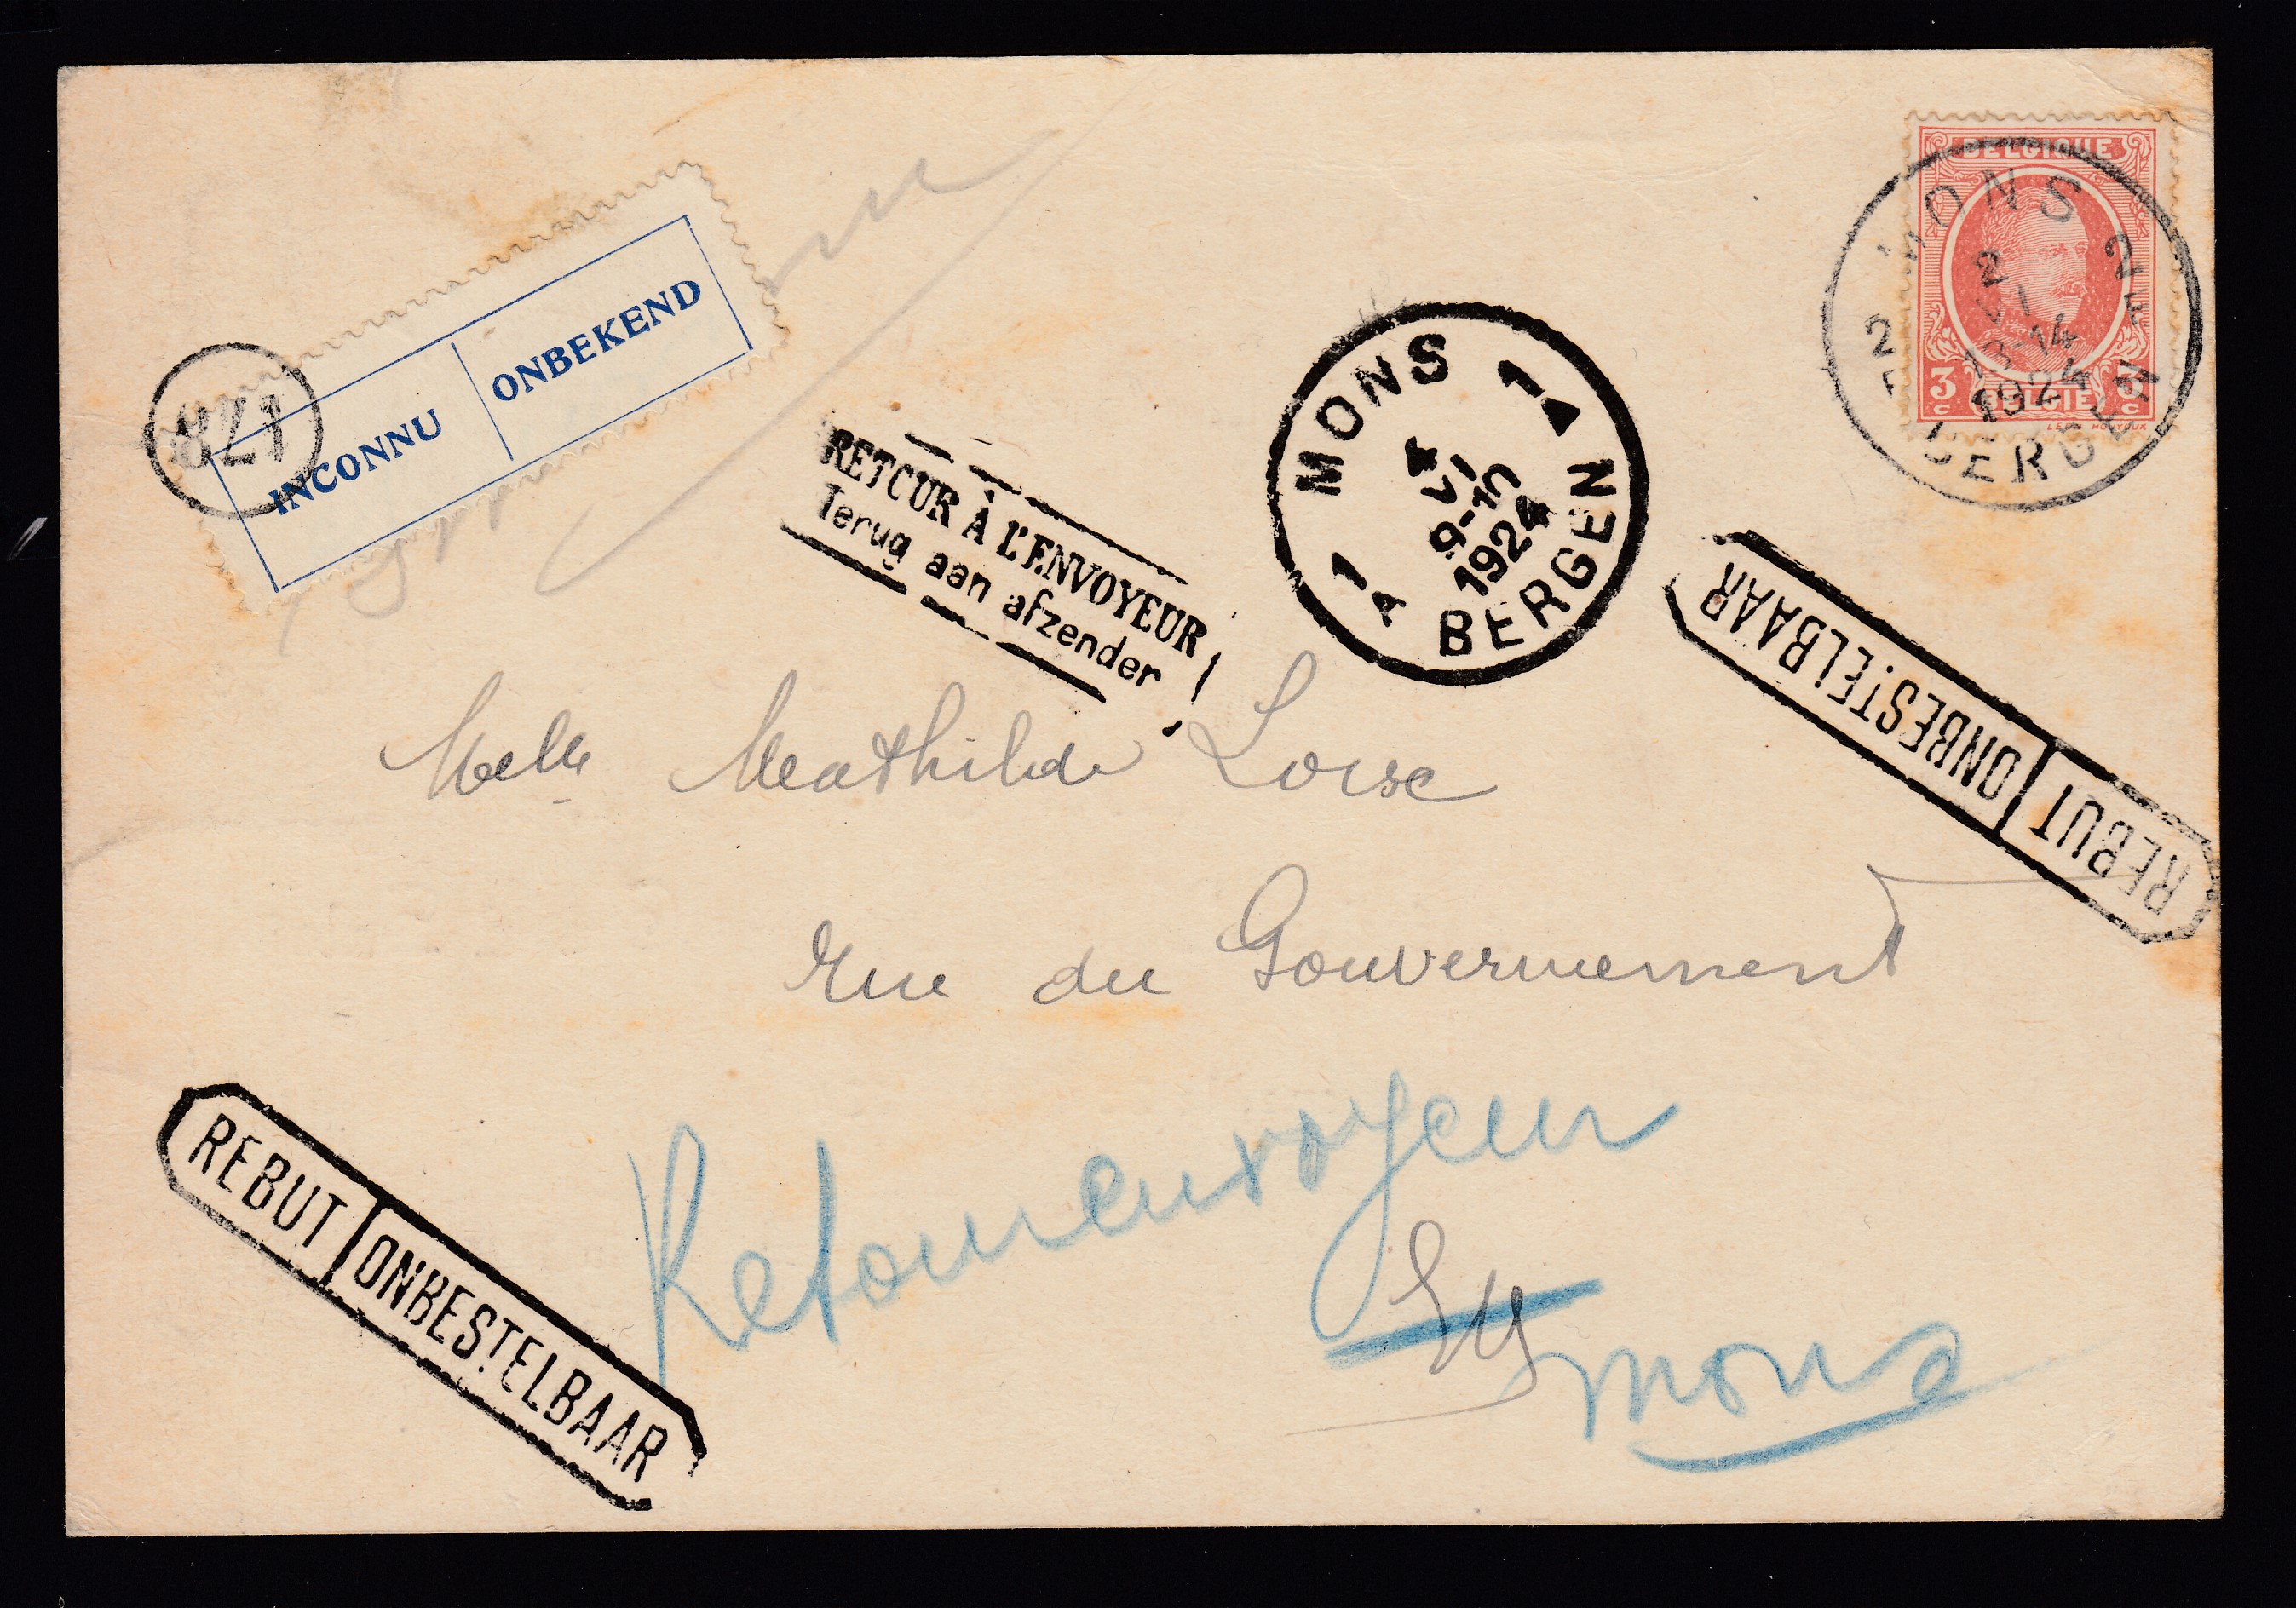 BELGIQUE
3c BELGIË 3c
MONS
2 2
E E
2
VI
13-14
1924
BERGEN
INCONNU ONBEKEND
RETOUR À L'ENVOYEUR
Terug aan afzender
MONS
1 1
A A
4
VI
9-10
1924
BERGEN
REBUT ONBESTELBAAR
Melle Mathilde Loise
Rue du Gouvernement
Retour envoyeur
Mons
REBUT ONBESTELBAAR